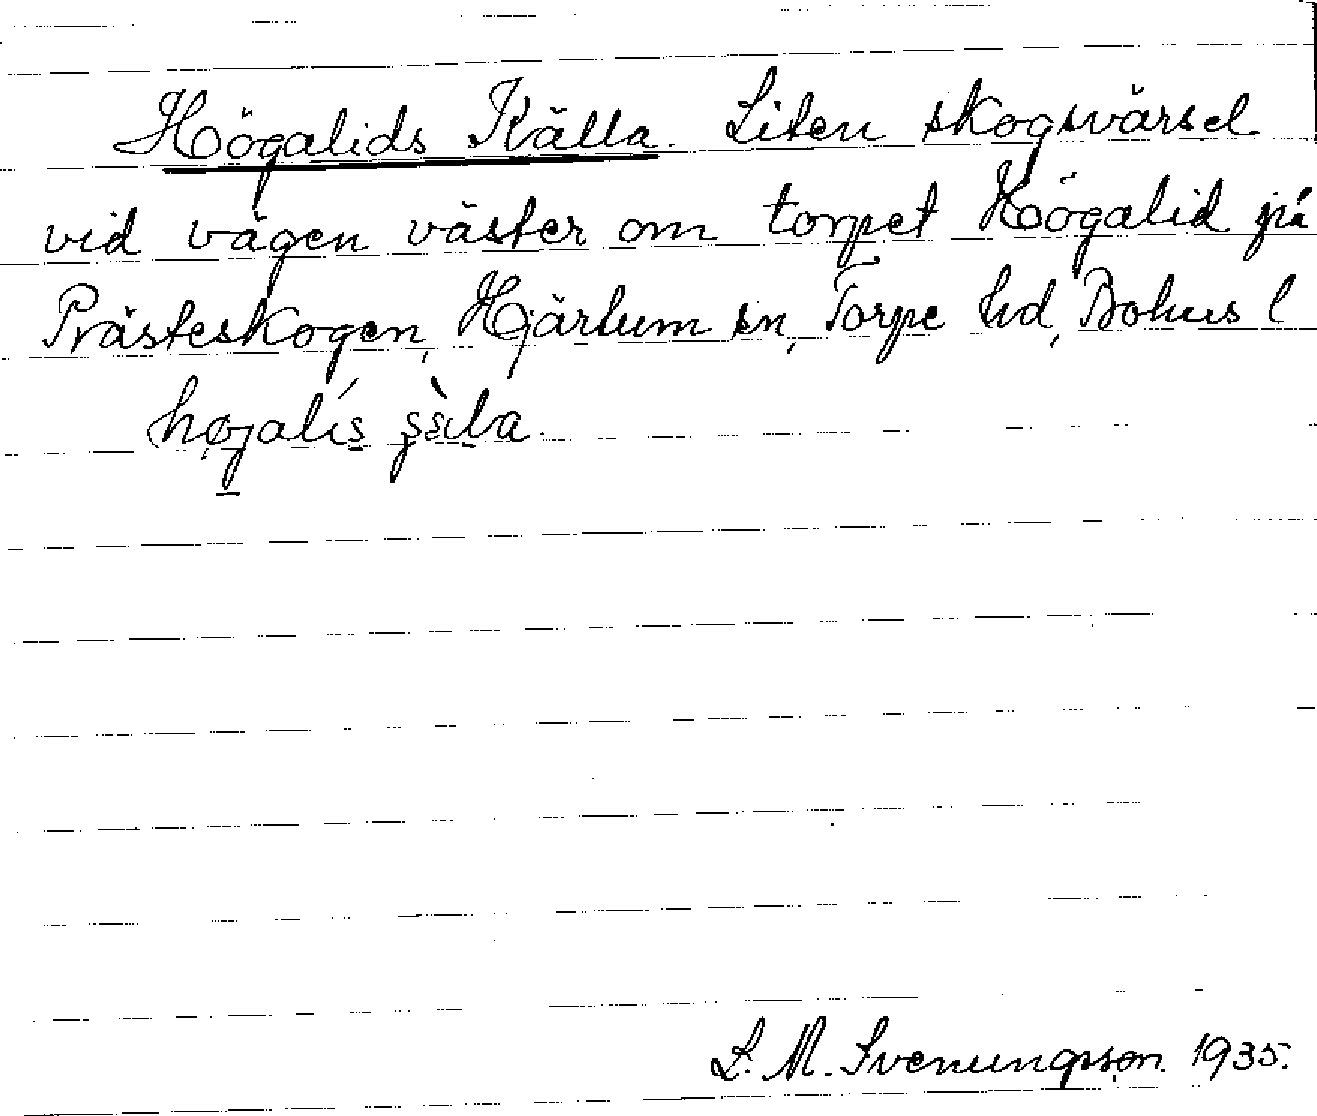 Högalids Källa. Liten skogsvärsel
vid vägen väster om torpet Högalid på
Prästeskogen, Hjärtum sn, Torpe hd, Bohus l
L. M. Svenungsson. 1935.